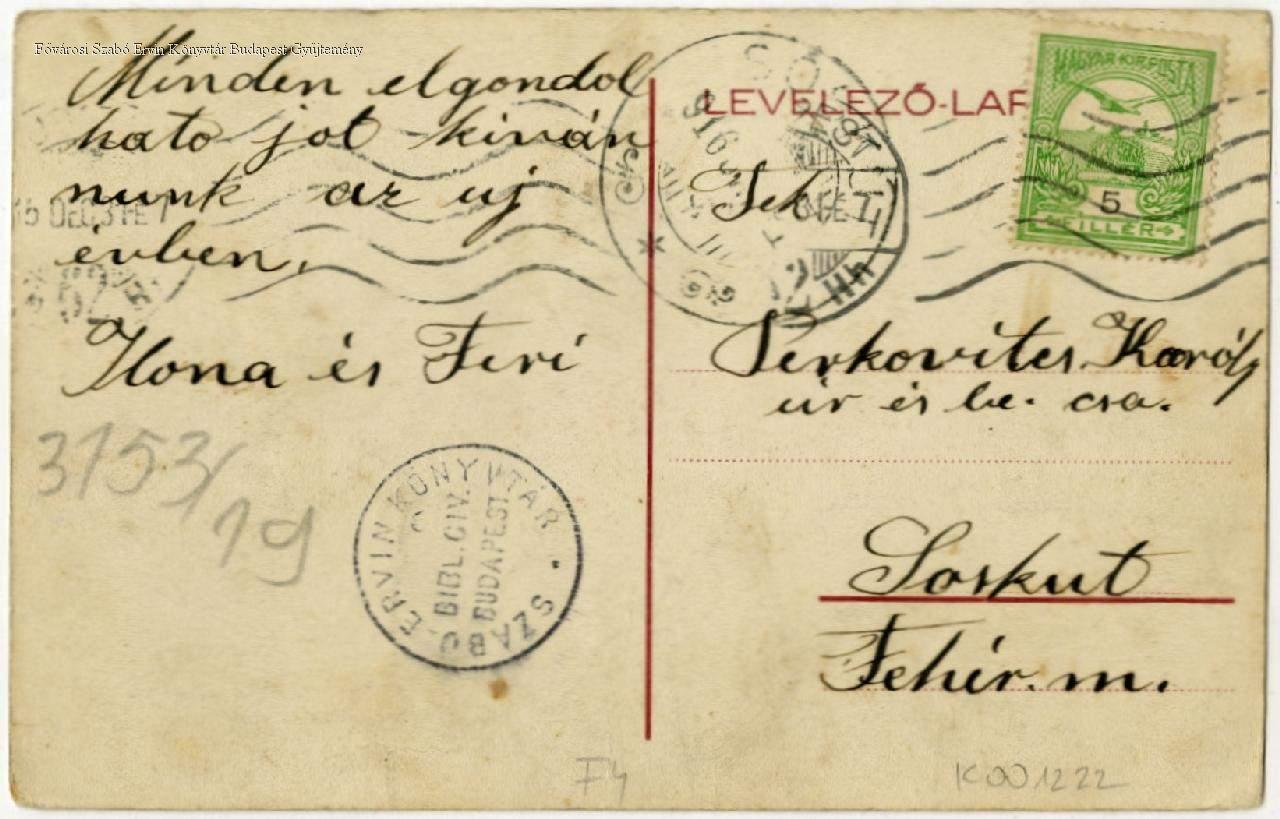 Fővárosi Szabó Ervin Könyvtár Budapest Gyűjtemény
Minden elgondol
ható jót kíván
nunk az uj
évben,
Ilona és Feri
3153/
19
SZABÓ ERVIN KÖNYVTÁR
BIBL. CIV.
BUDAPEST
F4
LEVELEZŐ-LAP
MAGYAR KIR. POSTA
5
FILLÉR
Tek
Serkovites Károly
úr és be. csa.
Soskut
Fehér. m.
K001222